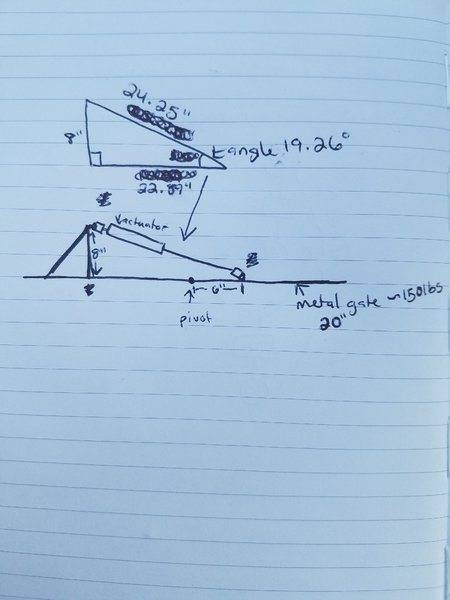 24.25"
8"
angle 19.26°
22.89"
actuator
8"
6"
pivot
metal gate ~150lbs
20"